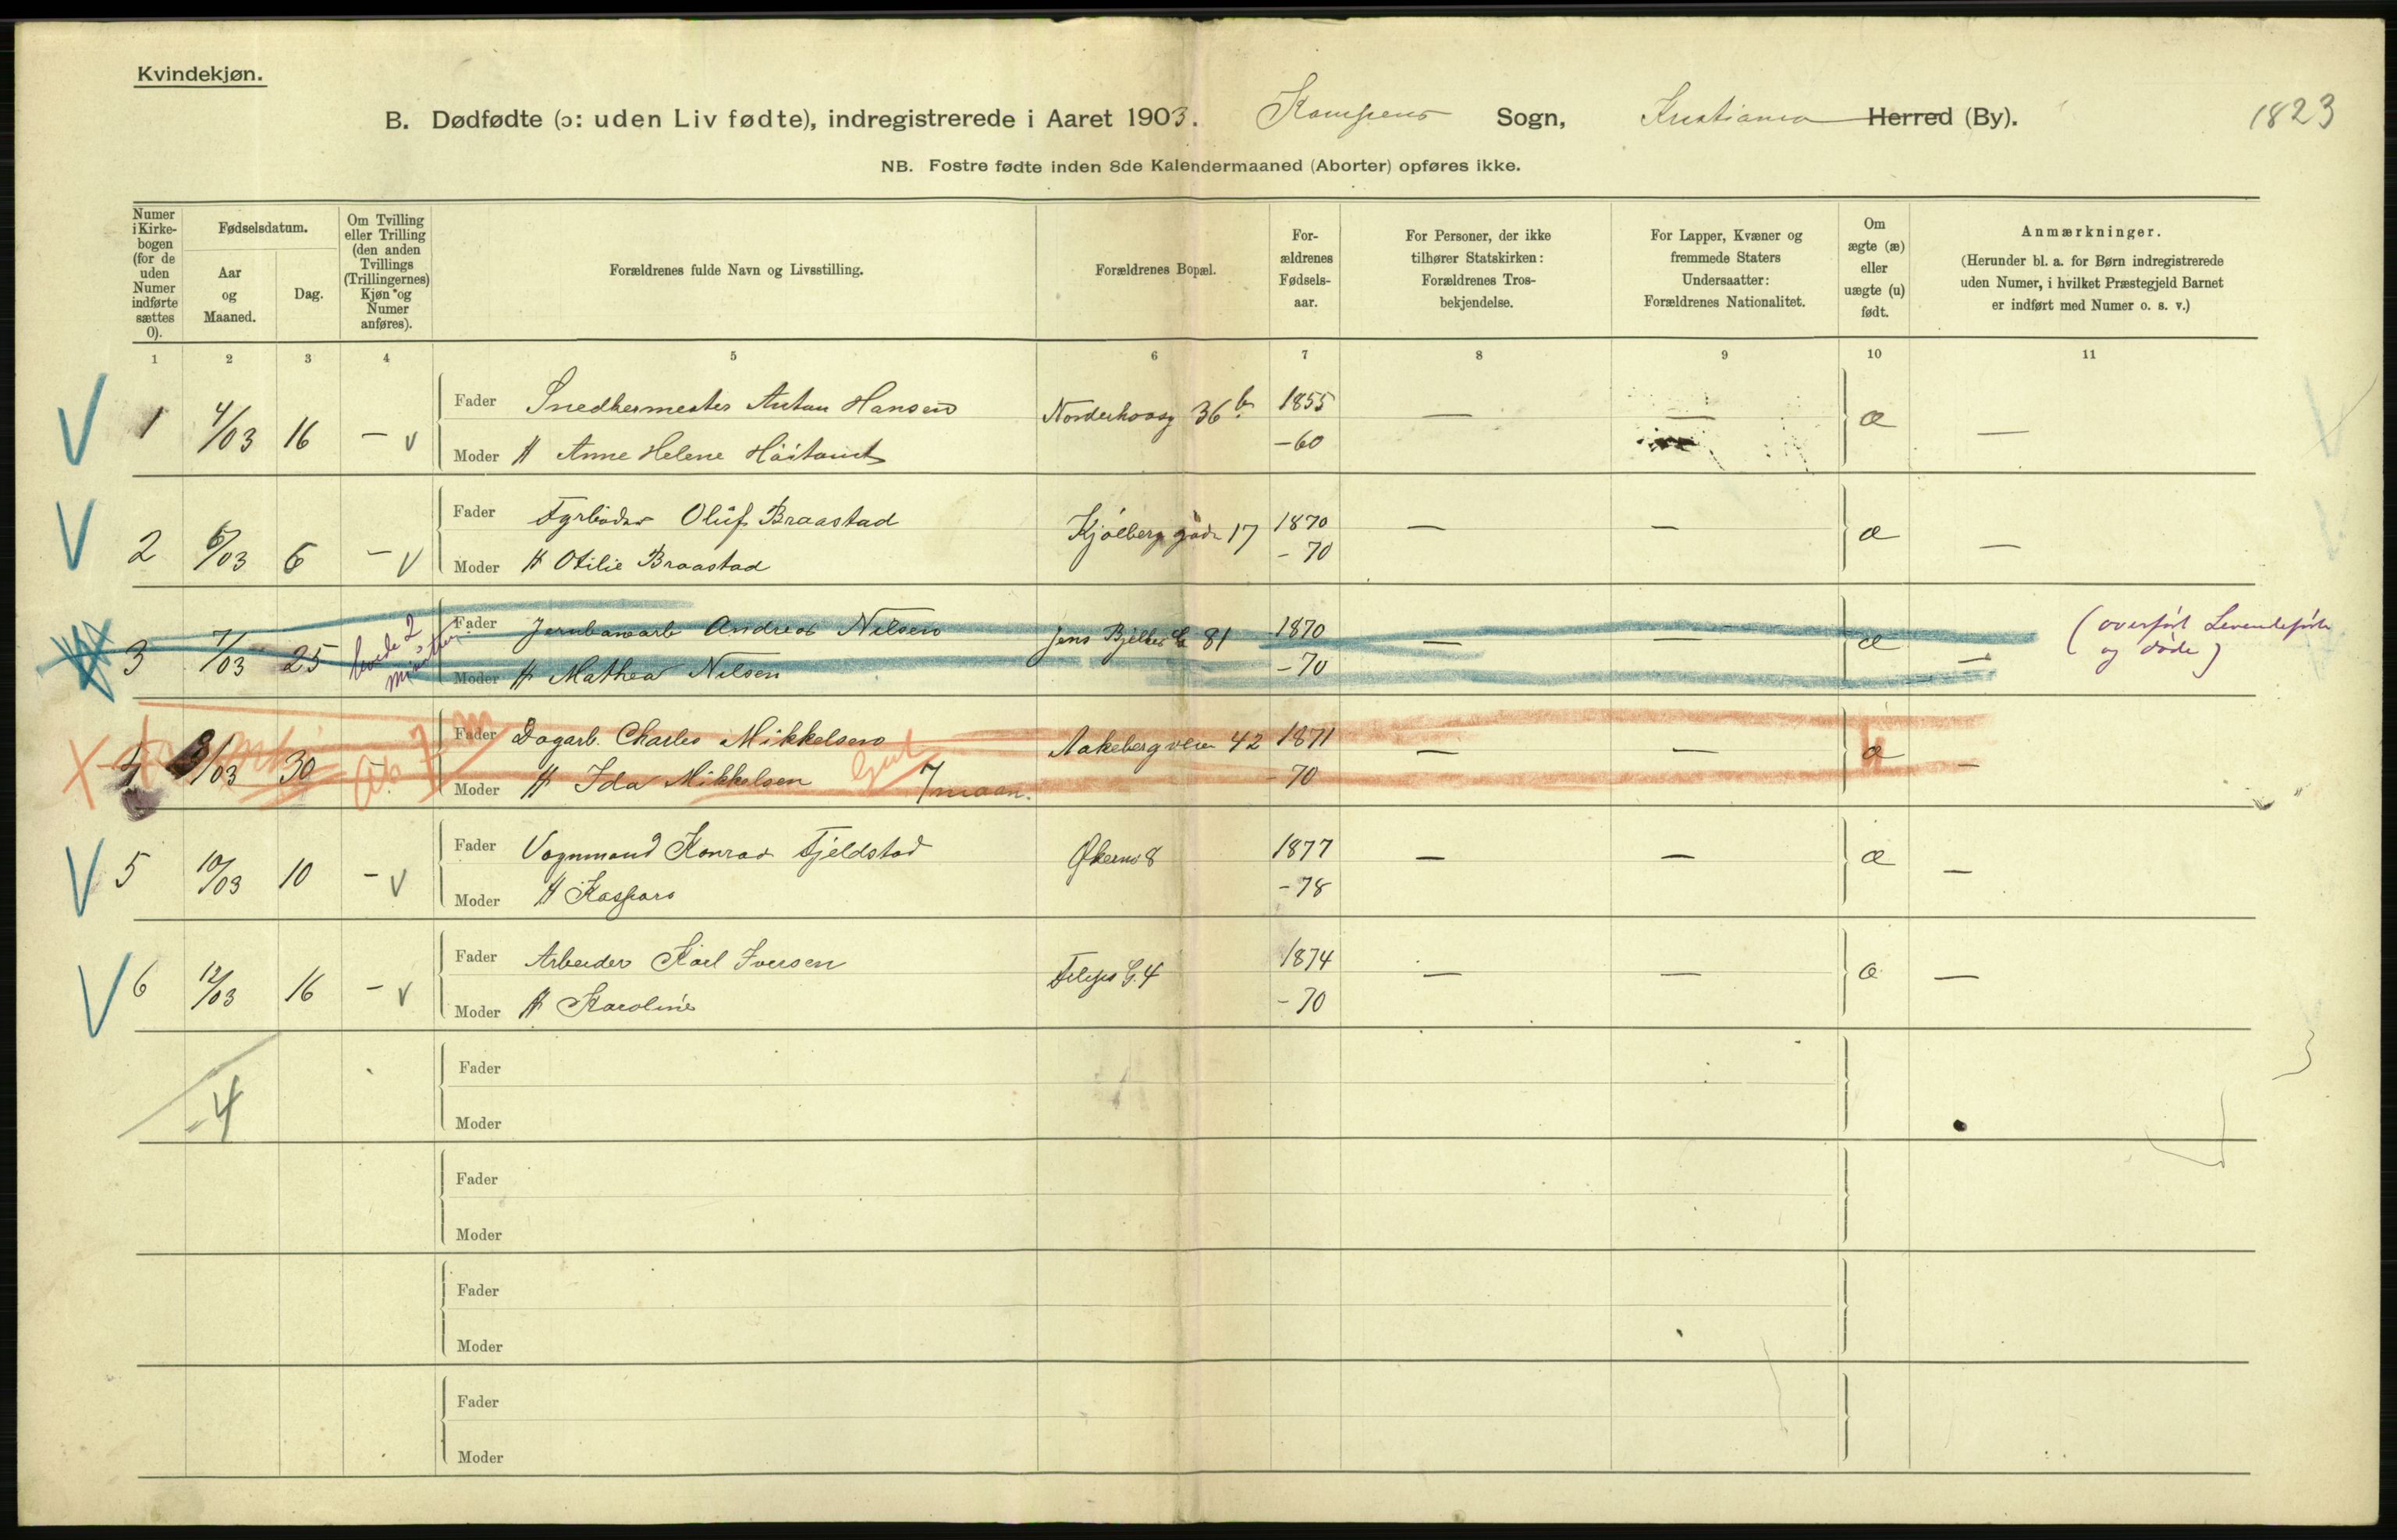 Kvindekjøn.
B. Dødfødte (ɔ: uden Liv fødte), indregistrerede i Aaret 1903. Kampens Sogn, Kristiania Herred (By). 1823
NB. Fostre fødte inden 8de Kalendermaaned (Aborter) opføres ikke.
Numer i Kirke-bogen (for de uden Numer indførte sættes 0).
Fødselsdatum.
Aar og Maaned.
Dag.
Om Tvilling eller Trilling (den anden Tvillings (Trillingernes) Kjøn og Numer anføres).
Forældrenes fulde Navn og Livsstilling.
Forældrenes Bopæl.
For-ældrenes Fødsels-aar.
For Personer, der ikke tilhører Statskirken: Forældrenes Tros-bekjendelse.
For Lapper, Kvæner og fremmede Staters Undersaatter: Forældrenes Nationalitet.
Om ægte (æ) eller uægte (u) født.
Anmærkninger. (Herunder bl. a. for Børn indregistrerede uden Numer, i hvilket Præstegjeld Barnet er indført med Numer o. s. v.)
1 2 3 4 5 6 7 8 9 10 11
V 1 4/03 16 – v Fader Snedkermester Anton Hansen Norderhovsg 36 b. 1855 — — æ —
Moder H Anne Helene -60
V 2 6/03 6 – v Fader Fyrbøder Oluf Braastad Kjølberg gade 17 1870 — — æ —
Moder H Otilie Braastad - 70
3 7/03 25 levede 2 minutter Fader Jernbanearb Andreas Nilsen Jens Bjelkes G 81 1870 — — æ — (overført Levendefødte
Moder H Mathea Nilsen - 70 og døde)
X 4 8/03 30 – Fader Dagarb. Charles Mikkelsen Aakebergveien 42 1871 — — æ —
Moder H Ida Mikkelsen 7 maan. - 70
V 5 10/03 10 – v Fader Vognmand Konrad Fjeldstad Økernv 8 1877 — — æ —
Moder H Kaspara - 78
V 6 12/03 16 – v Fader Arbeider Karl Iversen G. 4 1874 — — æ —
Moder H Karoline - 70
Fader
4
Moder
Fader
Moder
Fader
Moder
Fader
Moder